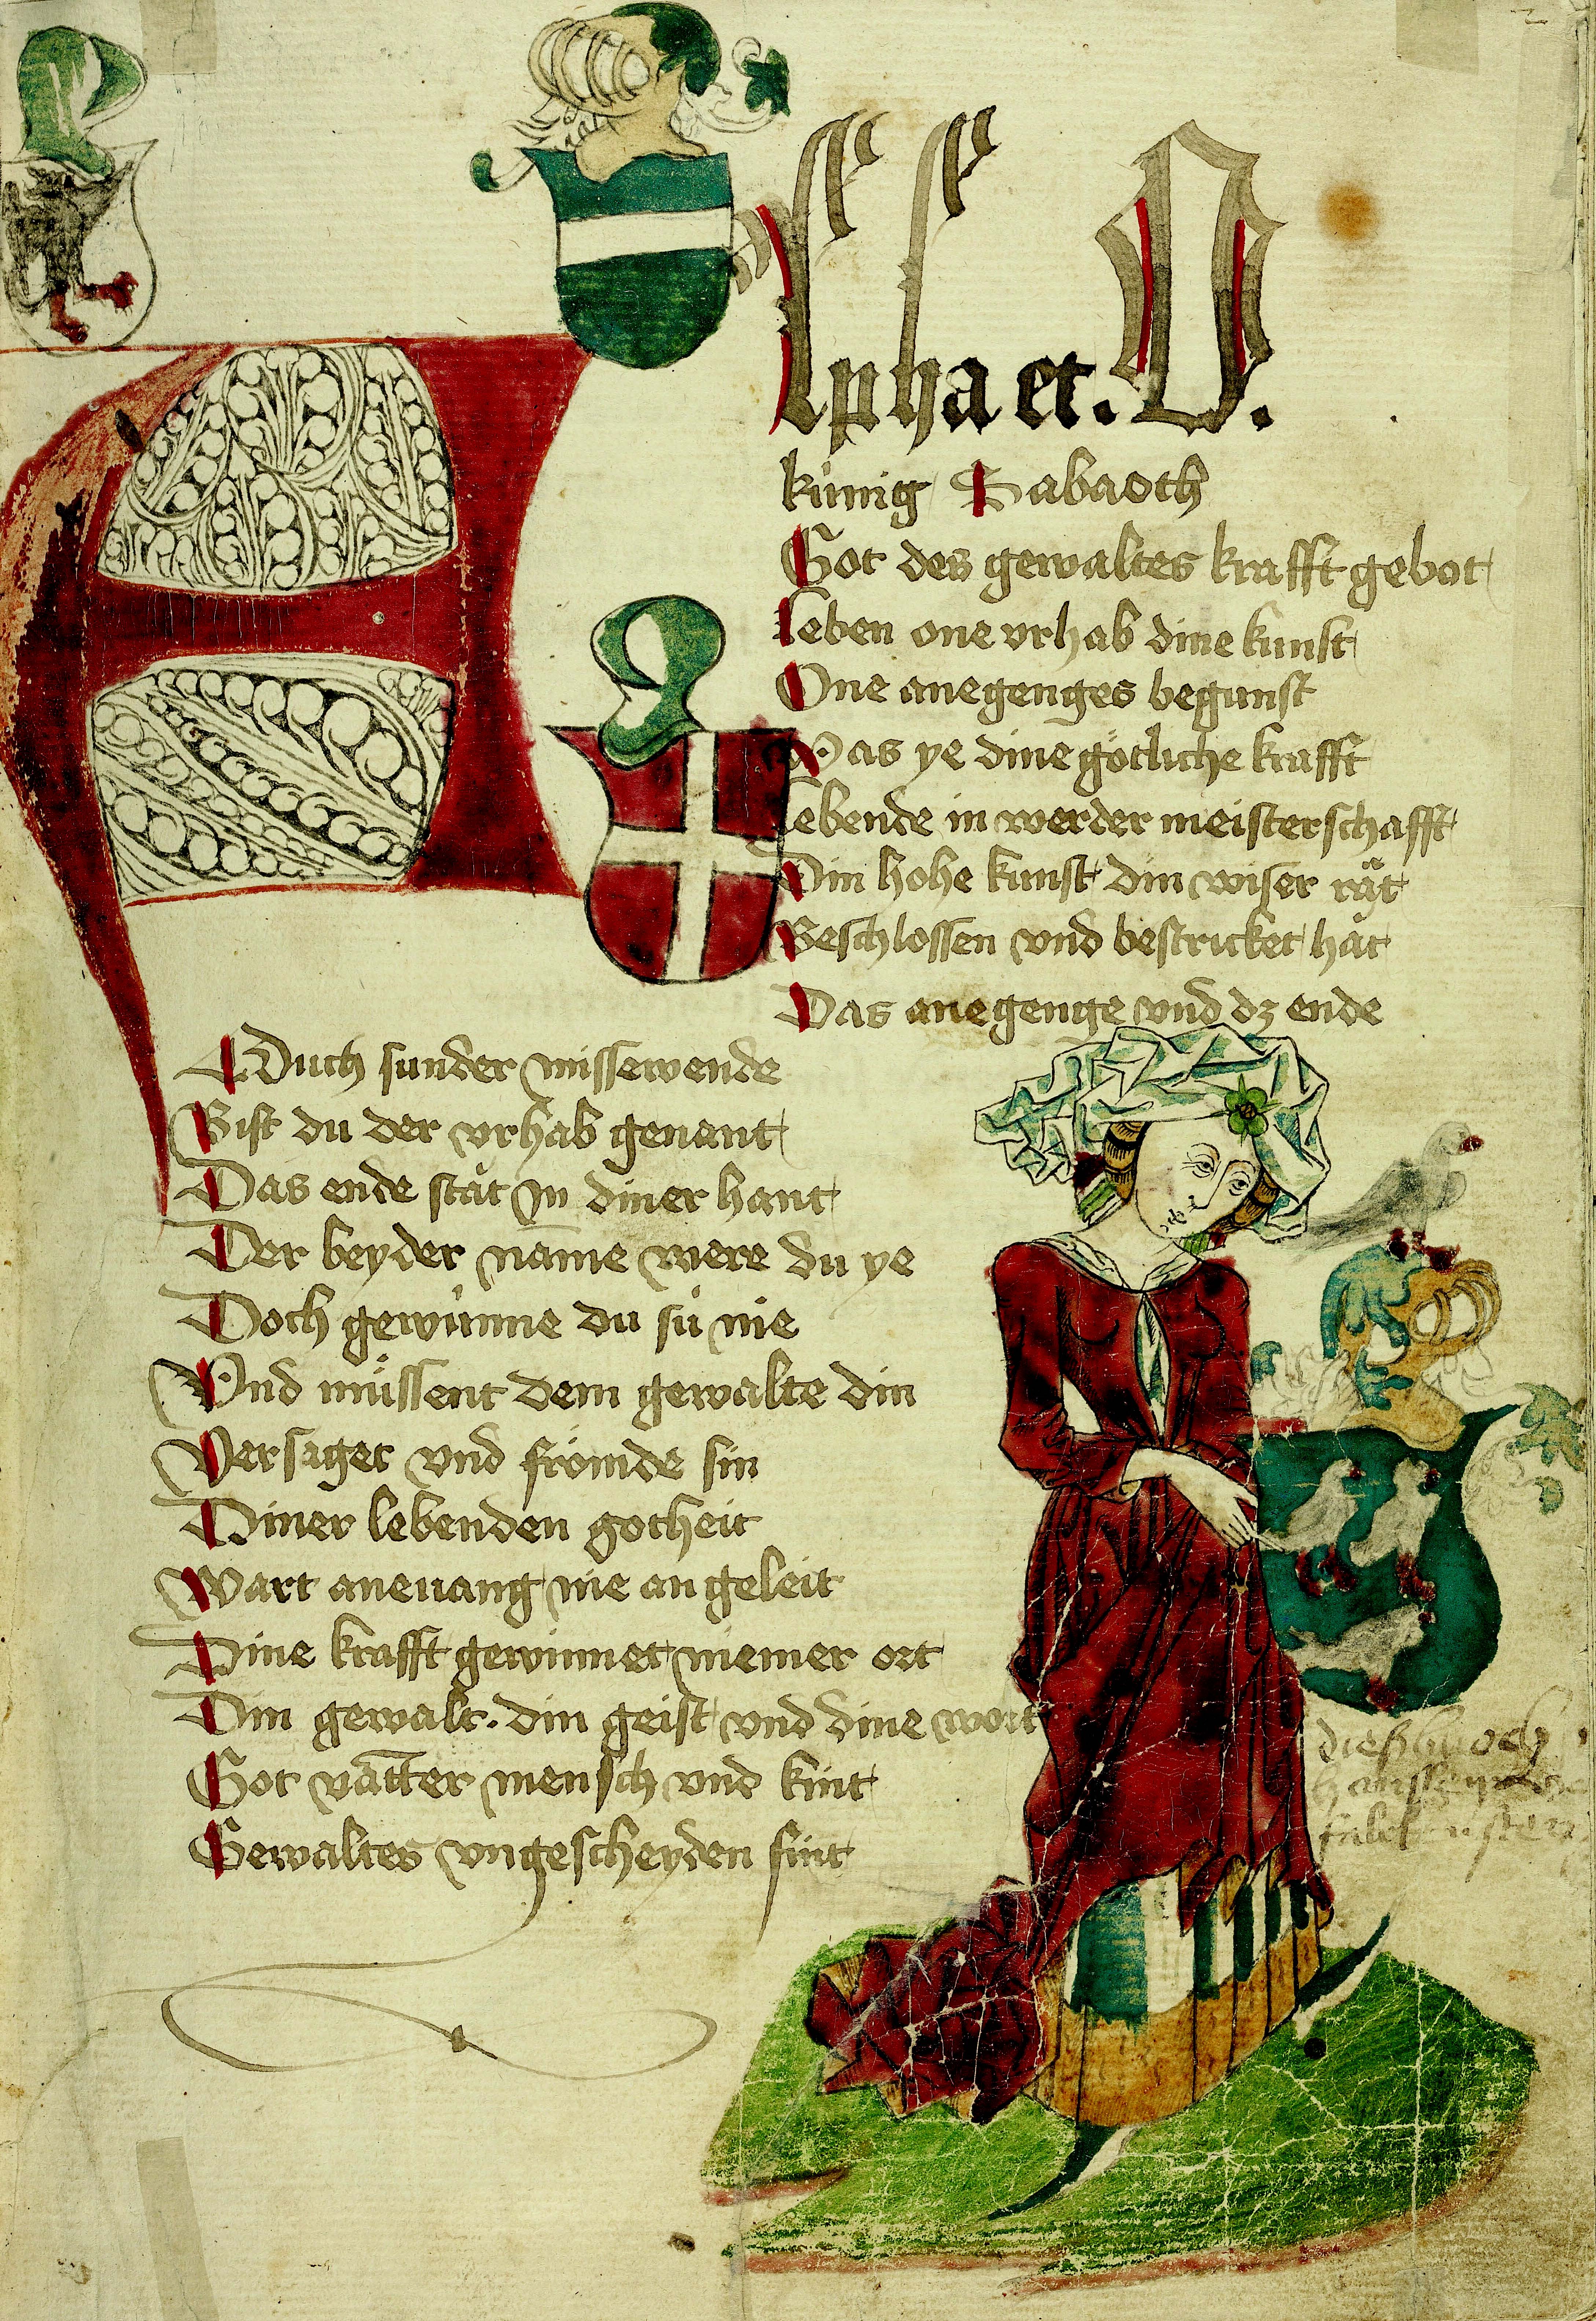 Alpha et. O.
kúnig Sabaoth
Got des gewaltes krafft gebot
Leben one vrhab dine kunst
One anegenges begunst
Was ye dine götliche krafft
Lebende in werder meisterschafft
Din hohe kunst din wiser rät
Beschlossen vnd bestricket hät
Das anegenge vnd dz ende
Duch sunder missewende
Bist du der vrhab genant
Das ende stät in diner hant
Der beyder name were du ye
Doch gewúnne du sú nie
Vnd müssent dem gewalte din
Versaget vnd frömde sin
Diner lebenden gotheit
Wart anevang nie an geleit
Dine krafft gewinnet niemer ort
Din gewalt. din geist vnd dine wort
Got vatter mensch vnd kint
Gewaltes vngescheyden sint
dieß buoch